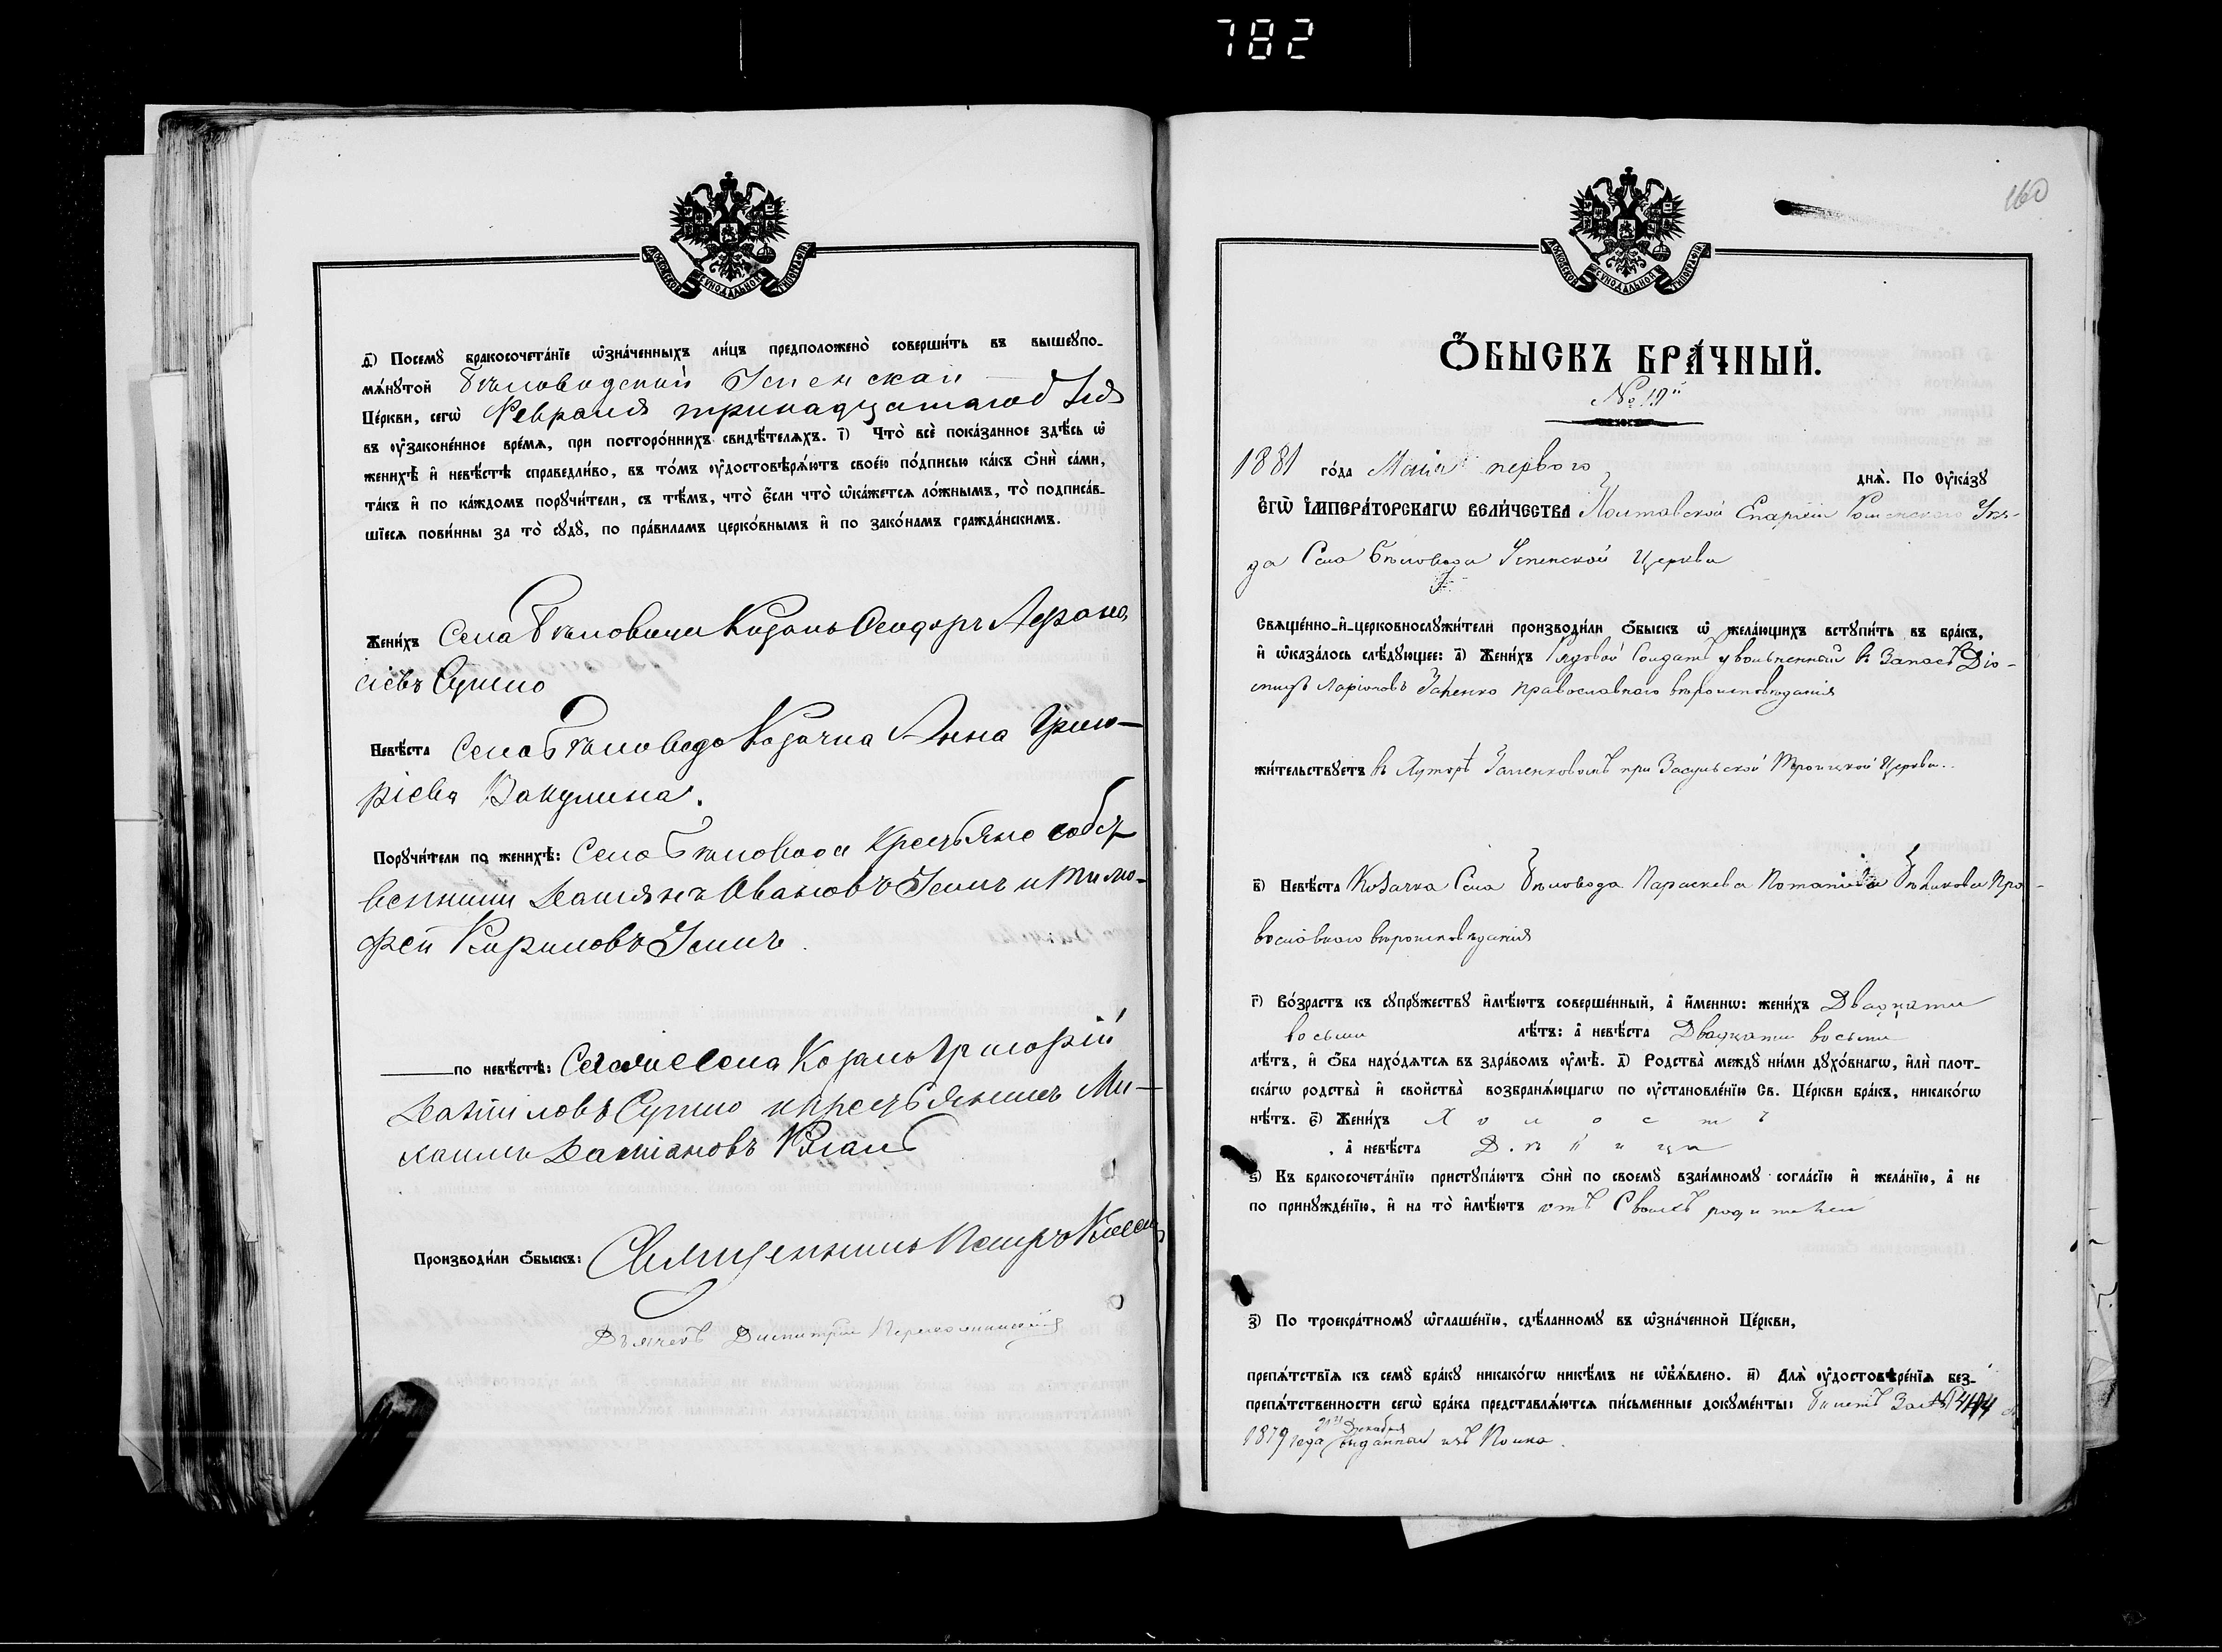 782
160
МОСКОВСКОЙ СѴНОДАЛЬНОЙ ТИПОГРАФІИ
д҃і) Посемꙋ̀ бракосочета́нїе ѡ҆зна́ченныхъ ли́цъ предположено̀ соверши́ть въ вышеꙋпо-
мѧ́нꙋтой Бѣловодской Успенской
Це́ркви, сегѡ̀ Февраля тринадцатого дня
въ ᲂу҆законе́нное вре́мѧ, при посторо́ннихъ свидѣ́телѧхъ. і҃) Что̀ всѐ пока́занное здѣ́сь ѡ҆
женихѣ̀ и҆ невѣ́стѣ справедли́во, въ то́мъ ᲂу҆достовѣрѧ́ютъ свое́ю по́дписью ка́къ ѻ҆нѝ са́ми,
та́къ и҆ по ка́ждомъ порꙋчи́тели, съ тѣ́мъ, что̀ є҆́сли что̀ ѡ҆ка́жетсѧ ло́жнымъ, то̀ подписа́в-
шїесѧ пови́нны за то̀ сꙋдꙋ̀, по пра́виламъ церко́внымъ и҆ по зако́намъ гражда́нскимъ.
Жени́хъ Села Бѣловода Козакъ Феодоръ Афана
сіевъ Сушко
Невѣ́ста Села Бѣловода Козачка Анна Григо-
ріева Вакулина.
Порꙋчи́тели по женихѣ̀: Села Бѣловода Крестьяне собст
венники Дамянъ Ивановъ и Тимо-
фей Кириловъ
по невѣ́стѣ: Козакъ Григорій
Даниловъ Сушко и крестьянинъ Ми-
хаилъ Даміановъ
Производи́ли ѻ҆́быскъ: Священникъ Петръ
Дьячекъ Димитрій
МОСКОВСКОЙ СѴНОДАЛЬНОЙ ТИПОГРАФІИ
Ѻ҆́БЫСКЪ БРА́ЧНЫЙ.
№ 19й
1881 го́да Маія первого днѧ̀. По ᲂу҆ка́зꙋ
є҆гѡ̀ і҆мпера́торскагѡ вели́чества Полтавской Епархіи Роменского Уѣз-
да Села Бѣловода Успенской Церкви
Свѧще́нно-и҆-церковнослꙋжи́тели производи́ли ѻ҆́быскъ ѡ҆ жела́ющихъ встꙋпи́ть въ бра́къ,
и҆ ѡ҆каза́лось слѣ́дꙋющее: а҃) Жени́хъ Рядовой Солдатъ увольненный въ Запасъ Діо-
нисій Ларіоновъ Заленко православного вѣроисповѣданія
жи́тельствꙋетъ въ Хуторѣ Заленковомъ при Засульской Троицкой Церкви.
в҃) Невѣ́ста Козачка Села Бѣловода Параскева Потапіева Бѣликова Пра-
вославного вѣроисповѣданія
г҃) Во́зрастъ къ сꙋпрꙋ́жествꙋ и҆мѣ́ютъ соверше́нный, а҆ и҆́меннѡ: жени́хъ Двадцати
восьми лѣ́тъ: а҆ невѣ́ста Двадцати восьми
лѣ́тъ, и҆ ѻ҆́ба нахо́дѧтсѧ въ здра́вомъ ᲂу҆мѣ̀. д҃) Родства̀ междꙋ̀ ни́ми дꙋхо́внагѡ, и҆лѝ плот-
ска́гѡ родства̀ и҆ свойства̀ возбранѧ́ющагѡ по ᲂу҆становле́нїю Св. Це́ркви бра́къ, никако́гѡ
нѣ́тъ. є҃) Жени́хъ Холостъ
а҆ невѣ́ста Дѣвица
ѕ҃) Въ бракосочета́нїю пристꙋпа́ютъ ѻ҆нѝ по своемꙋ̀ взаи́мномꙋ согла́сїю и҆ жела́нїю, а҆ не
по принꙋжде́нїю, и҆ на то̀ и҆мѣ́ютъ отъ Своихъ родителей
з҃) По троекра́тномꙋ ѡ҆глаше́нїю, сдѣ́ланномꙋ въ ѡ҆зна́ченной Це́ркви,
препѧ́тствїѧ къ семꙋ̀ бра́кꙋ никако́гѡ никѣ́мъ не ѡ҆б̾ѧ́влено. и҃) Длѧ̀ ᲂу҆достовѣре́нїѧ без-
препѧ́тственности сегѡ̀ бра́ка представлѧ́ютсѧ пи́сьменные докꙋме́нты: Билетъ За №
1879 года Декабря выданный изъ Полка.